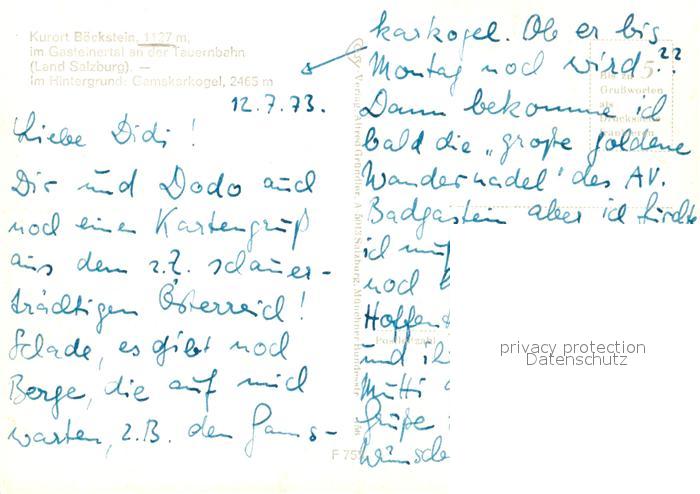 Kurort Böckstein, 1127 m,
im Gasteinertal an der Tauernbahn
(Land Salzburg). —
Im Hintergrund: Gamskarkogel, 2465 m
12.7.73.
Liebe Didi!
Dir und Dodo auch
noch einen Kartengruß
aus dem z.Z. schauer-
trächtigen Österreich!
Schade, es gibt noch
Berge, die auf mich
warten, z.B. den Gams-
karkogel. Ob er bis
Montag noch wird??
Dann bekomme ich
bald die „große goldene
Wandernadel" des AV.
Badgastein aber ich fürchte
ich muß
noch
Hoffent
und ih
Mutti
Grüße
Wünsche
Bis zu 5
Grußworten
als
Drucksache
F 75
privacy protection
Datenschutz